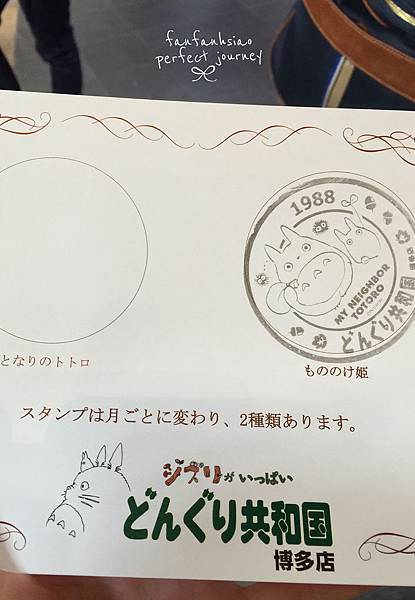 fanfanhsiao
perfect journey
1988
MY NEIGHBOR
TOTORO
どんぐり共和国
となりのトトロ
もののけ姫
スタンプは月ごとに変わり、2種類あります。
ジブリがいっぱい
どんぐり共和国
博多店